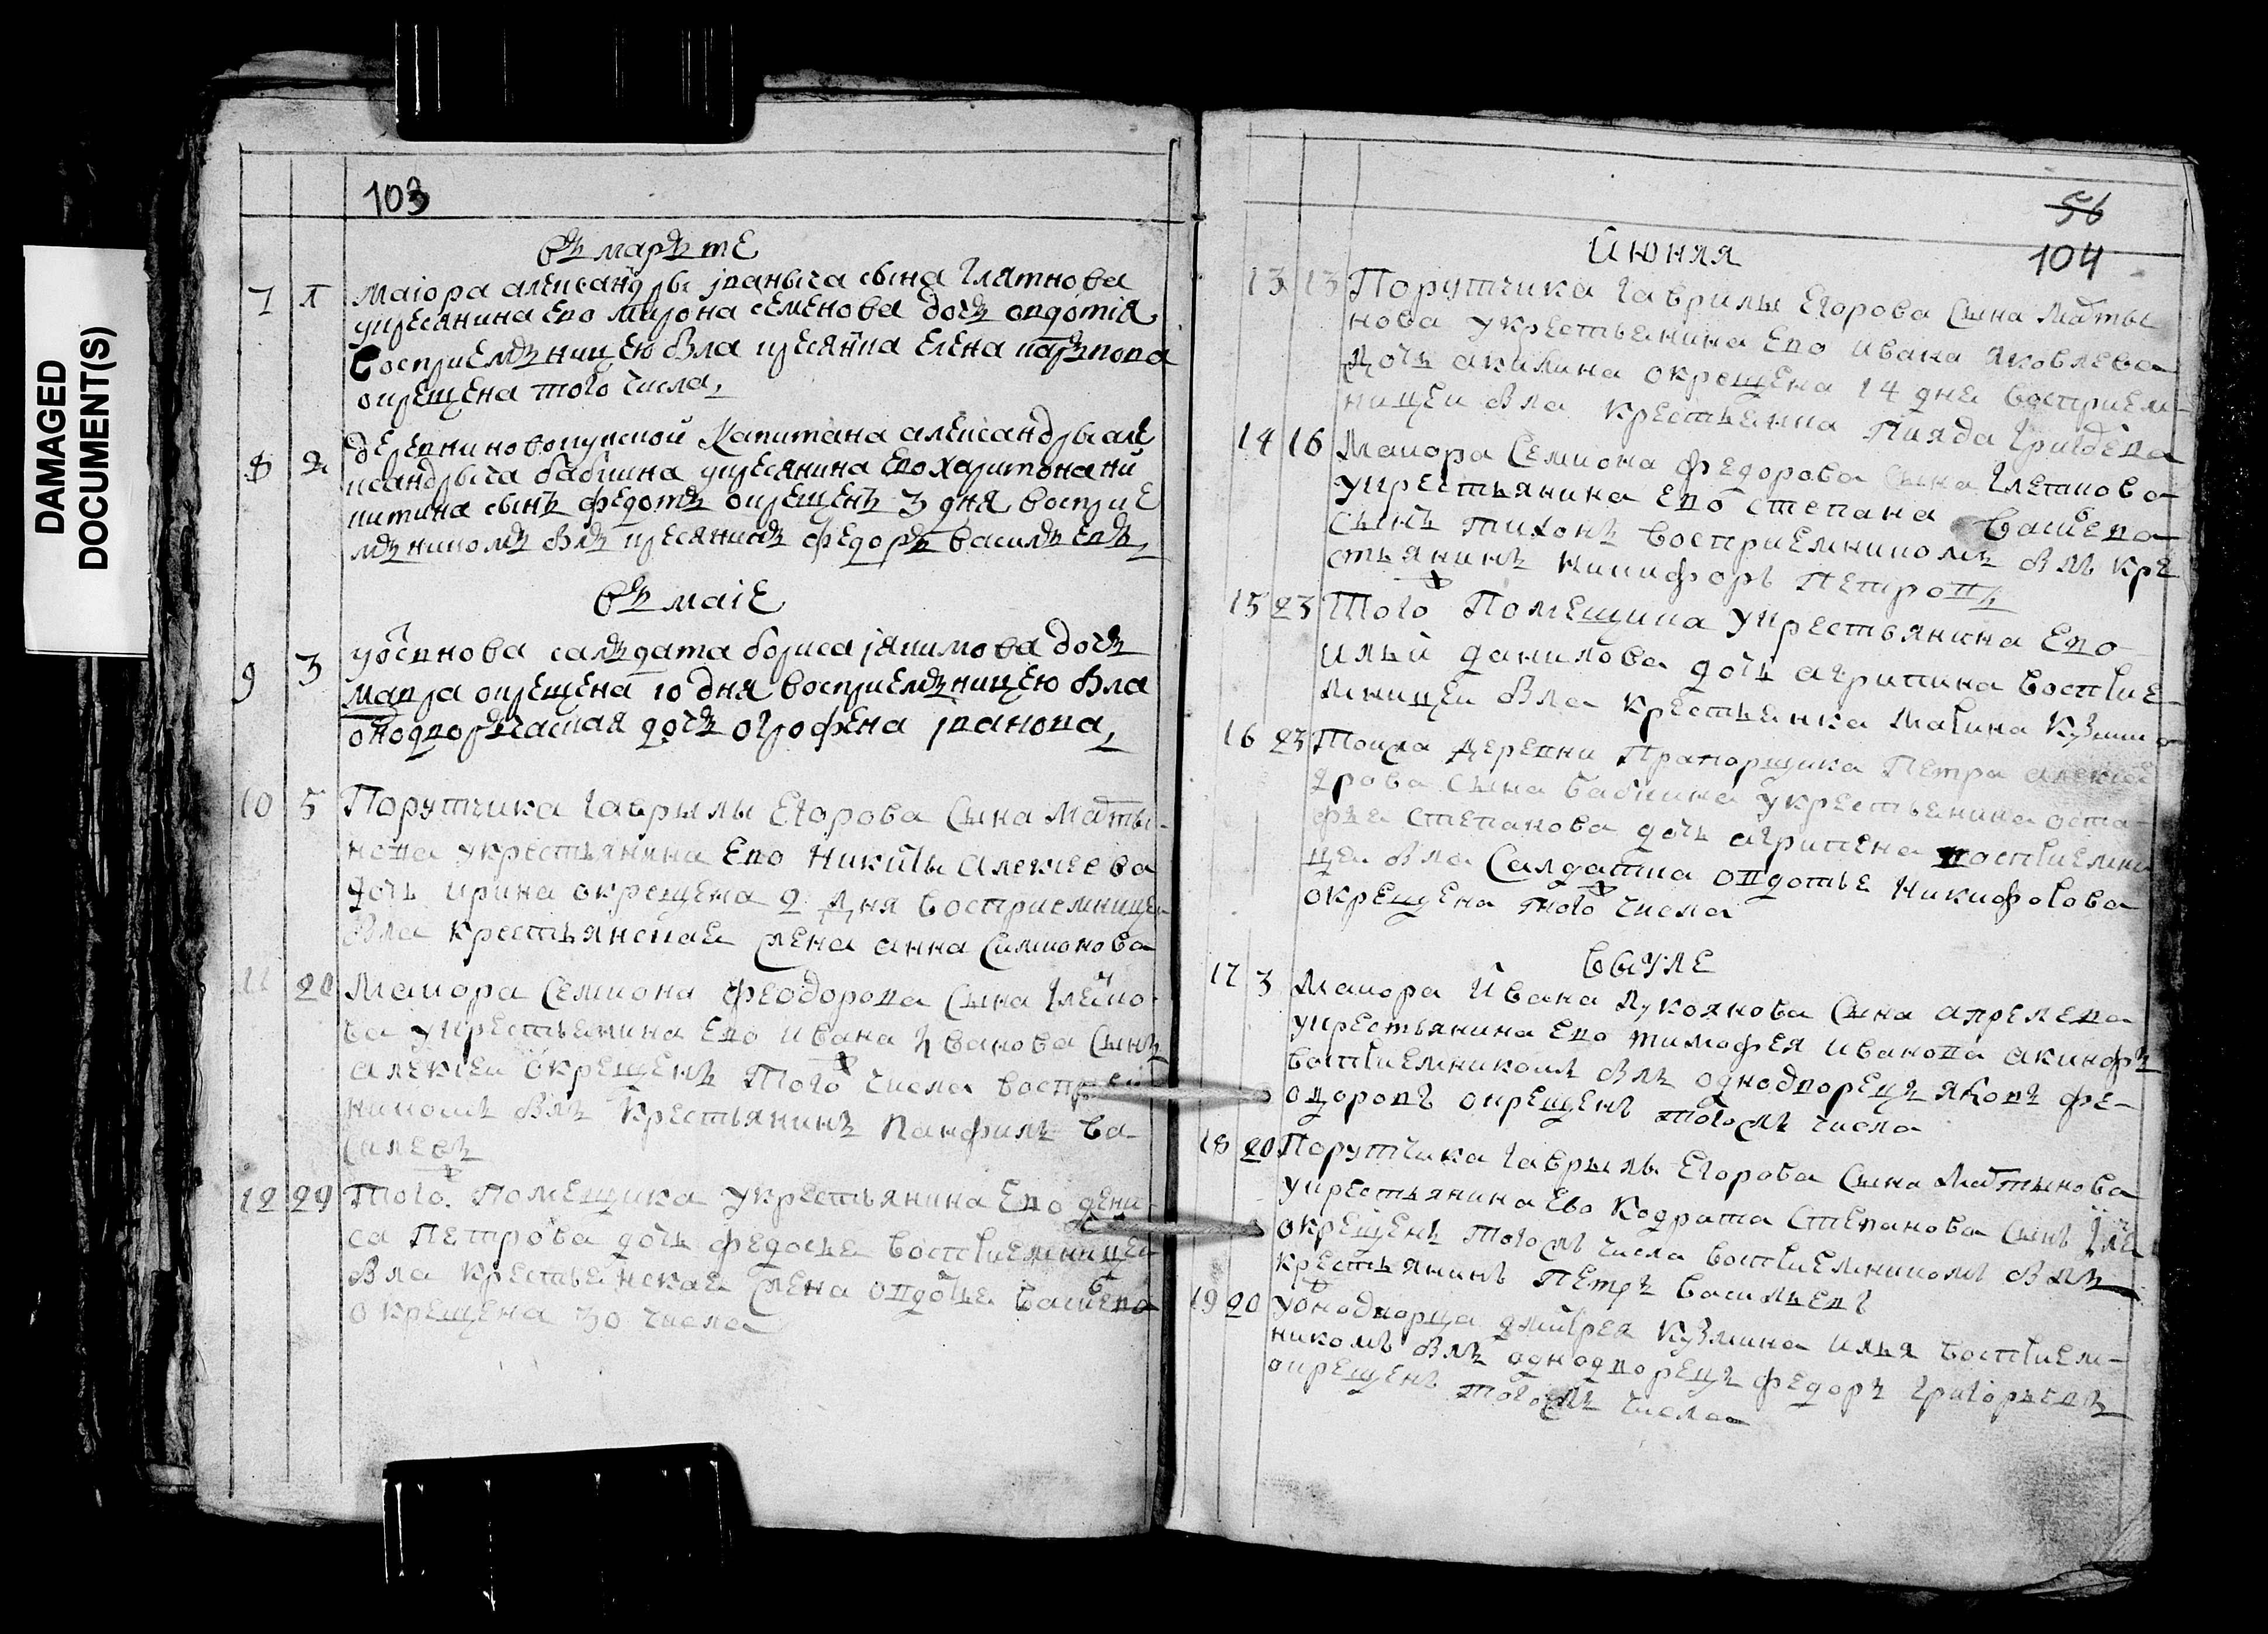 DAMAGED
DOCUMENT(S)
103
въ мартъ те
7 1 маиора александры іваныча сына глятнова
укресянина ево мирона семенова дочъ овдотiя
восприемъницею была кресянка елена
окрещена того числа,
деревни капитана александры але
8 2 ксандрыча бабкина укресянина ево харитона ни
китина сынъ федотъ окрещенъ 3 дня восприе
мъникомъ былъ кресянинъ федоръ василъевъ,
въ маiе
9 3 салъдата бориса якимова дочъ
мавра окрещена 10 дня восприемъницею была
дочъ огрофена іванова,
10 5 Порутчика гаврылы Егорова сына Маты-
нова укрестьянина ево Никиты алексеева
дочь ирина окрещена 9 дня восприемницеи
была крестьянская жена анна Симионова
11 20 Маиора Семиона феодорова сына
ва укрестьянина ево ивана ивановa сынъ
алексеи окрещенъ того ж числа восприем
никомъ былъ крестьянинъ Панфилъ ва
силевъ
12 29 того ж помещика укрестьянина ево дени-
са Петрова дочь федосье восприемницеи
была крестьенскае жена овдотье васильева
окрещена 30 числа
56
104
Июня
13 13 Порутчика гаврилы Егорова сына Маты
нова укрестьенина ево ивана яковлева
дочь акилина окрещена 14 дня восприем-
ницеи была крестьенка
14 16 Маиора Семиона федорова сына
укрестьянина ево степана васильева
сынъ тихонъ восприемникомъ былъ кре
стьянинъ никифоръ Петровъ
15 23 того ж Помещика укрестьянина ево
ильи данилова дочь агрипина восприе-
мницеи была крестьенка Марина кузмина
16 23 Тоижа деревни Прапорщика Петра алекса
ндрова сына бабкина укрестьенина оста-
фье степанова дочь агрипена восприемни
цеи была Салдатка овдотье Никифорова
окрещена того ж числа
выуле
17 3 Маиора ивана лукоянова сына апрелева
укрестьянина ево тимофея иванова акинфъ
восприемникомъ былъ однодворецъ яковъ фе-
одоровъ окрещенъ тогожъ числа
18 20 Порутчика гаврылы Егорова сына Матынова
укрестьянина ево кодрата степанова сынъ
окрещенъ тогожъ числа восприемникомъ былъ
крестьянинъ Петръ васильевъ
19 20 уоднодворца дмитрея кузмина илья восприем-
никомъ былъ однодворецъ федоръ григорьевъ
окрещенъ тогожъ числа